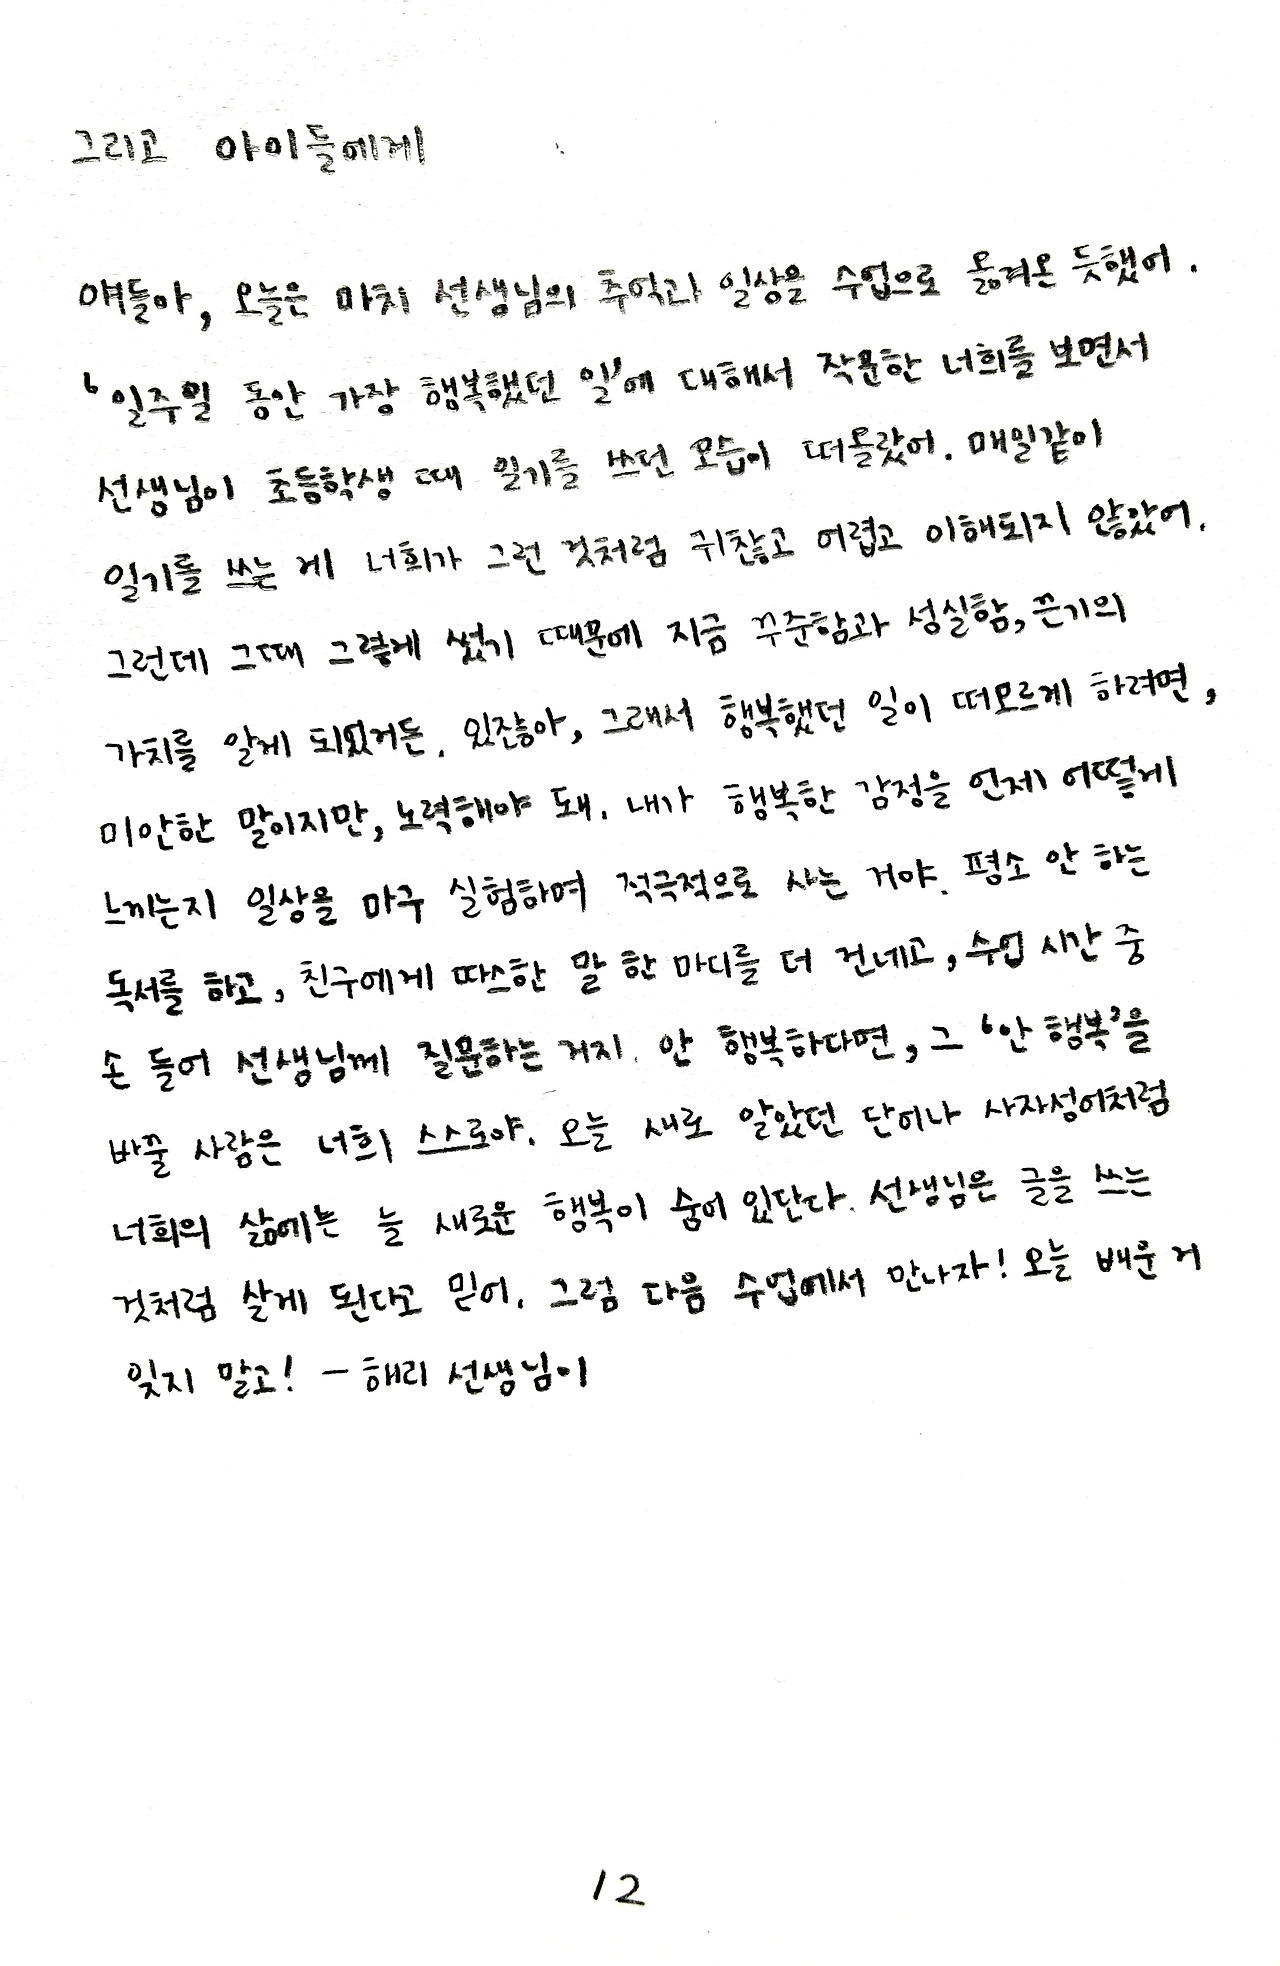 그리고 아이들에게
얘들아, 오늘은 마치 선생님의 추억과 일상을 수업으로 옮겨온 듯했어.
'일주일 동안 가장 행복했던 일'에 대해서 작문한 너희를 보면서
선생님이 초등학생 때 일기를 쓰던 모습이 떠올랐어. 매일같이
일기를 쓰는 게 너희가 그런 것처럼 귀찮고 어렵고 이해되지 않았어.
그런데 그때 그렇게 썼기 때문에 지금 꾸준함과 성실함, 끈기의
가치를 알게 되었거든. 있잖아, 그래서 행복했던 일이 떠오르게 하려면,
미안한 말이지만, 노력해야 돼. 내가 행복한 감정을 언제 어떻게
느끼는지 일상을 마구 실험하며 적극적으로 사는 거야. 평소 안 하는
독서를 하고, 친구에게 따스한 말 한 마디를 더 건네고, 수업 시간 중
손 들어 선생님께 질문하는 거지. 안 행복하다면, 그 '안 행복'을
바꿀 사람은 너희 스스로야. 오늘 새로 알았던 단어나 사자성어처럼
너희의 삶에는 늘 새로운 행복이 숨어 있단다. 선생님은 글을 쓰는
것처럼 살게 된다고 믿어. 그럼 다음 수업에서 만나자! 오늘 배운 거
잊지 말고! - 해리 선생님이
12